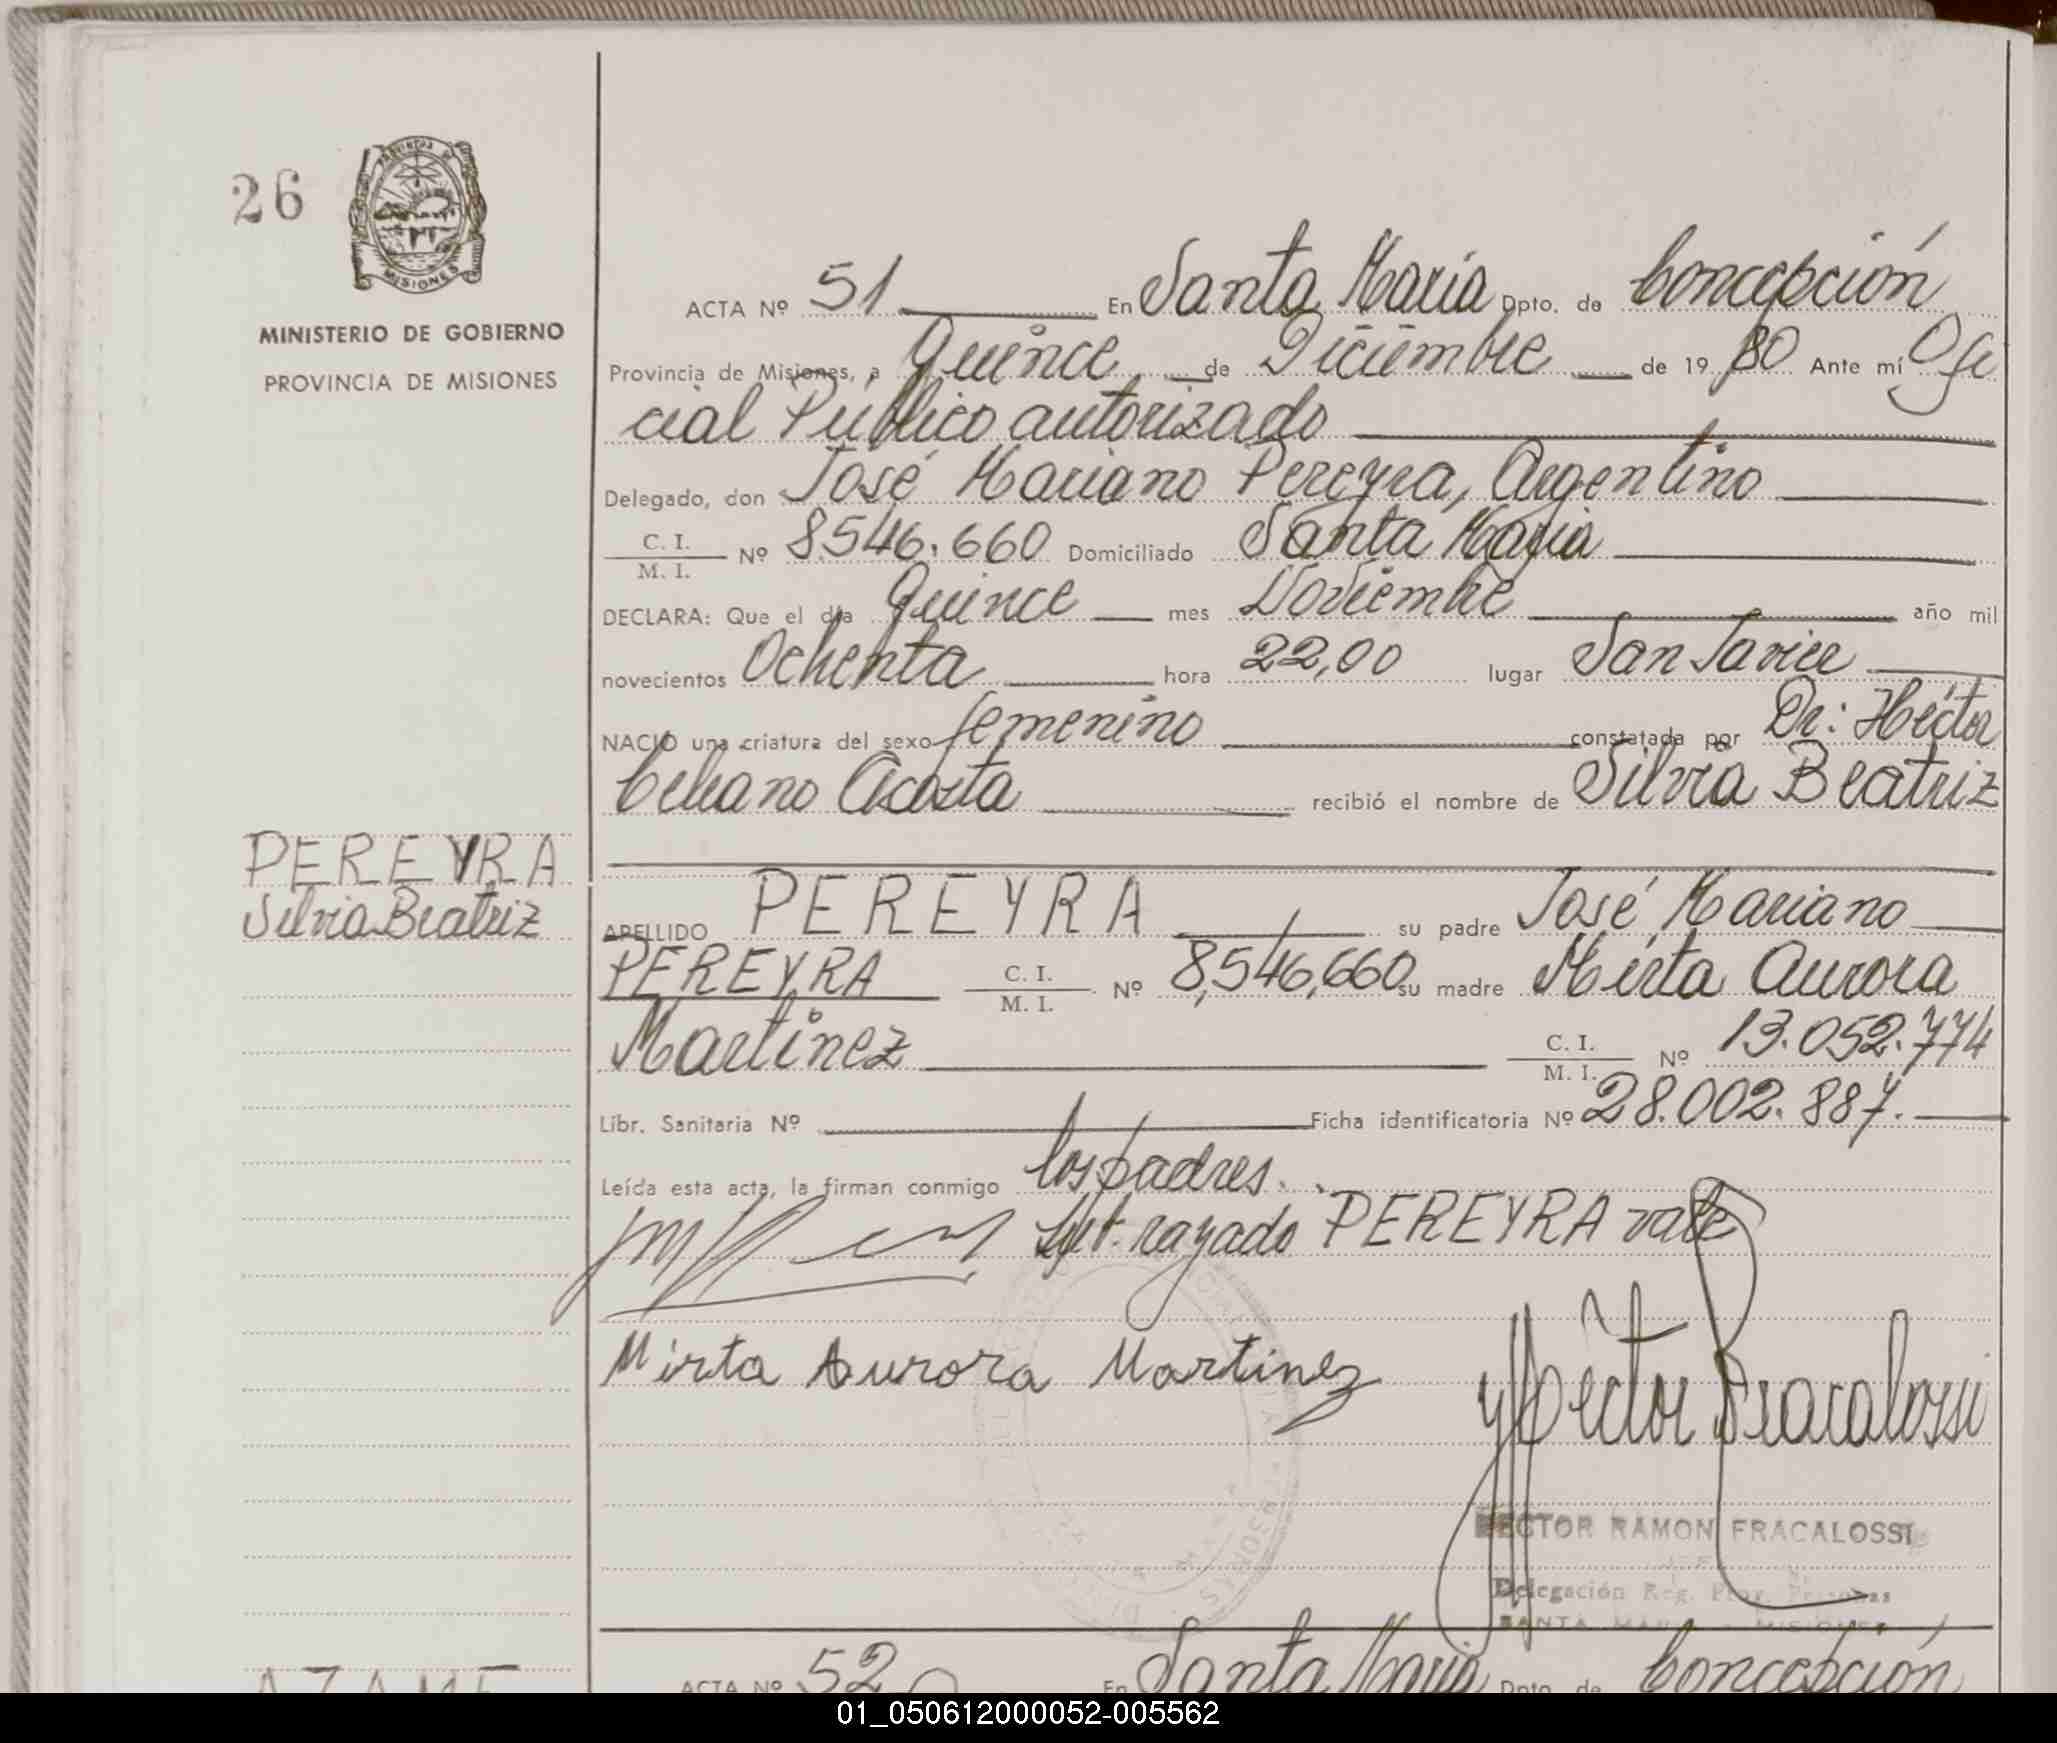 26
PROVINCIA DE
MISIONES
MINISTERIO DE GOBIERNO
PROVINCIA DE MISIONES
ACTA Nº 51 En Santa María Dpto. de Concepción
Provincia de Misiones, a Quince de Diciembre de 19 80 Ante mí Ofi
cial Público autorizado
Delegado, don José Mariano Pereyra, Argentino
C. I.
M. I. Nº 8.546.660 Domiciliado Santa María
DECLARA: Que el día Quince mes Noviembre año mil
novecientos Ochenta hora 22,00 lugar San Javier
NACIÓ una criatura del sexo femenino constatada por Dr: Héctor
Acosta recibió el nombre de Silvia Beatriz
PEREYRA
Silvia Beatriz
APELLIDO PEREYRA su padre José Mariano
PEREYRA C. I.
M. I. Nº 8,546,660 su madre Mirta Aurora
Martinez C. I.
M. I. Nº 13.052.774
Libr. Sanitaria Nº Ficha identificatoria Nº 28.002.887.
Leída esta acta, la firman conmigo los padres.
rayado PEREYRA vale
Mirta Aurora Martinez
Héctor Fracalossi
HECTOR RAMON FRACALOSSI
JEFE
Delegación Reg. Prov. Personas
SANTA MARIA - MISIONES
ACTA Nº 52 En Santa María Dpto. de Concepción
01_050612000052-005562